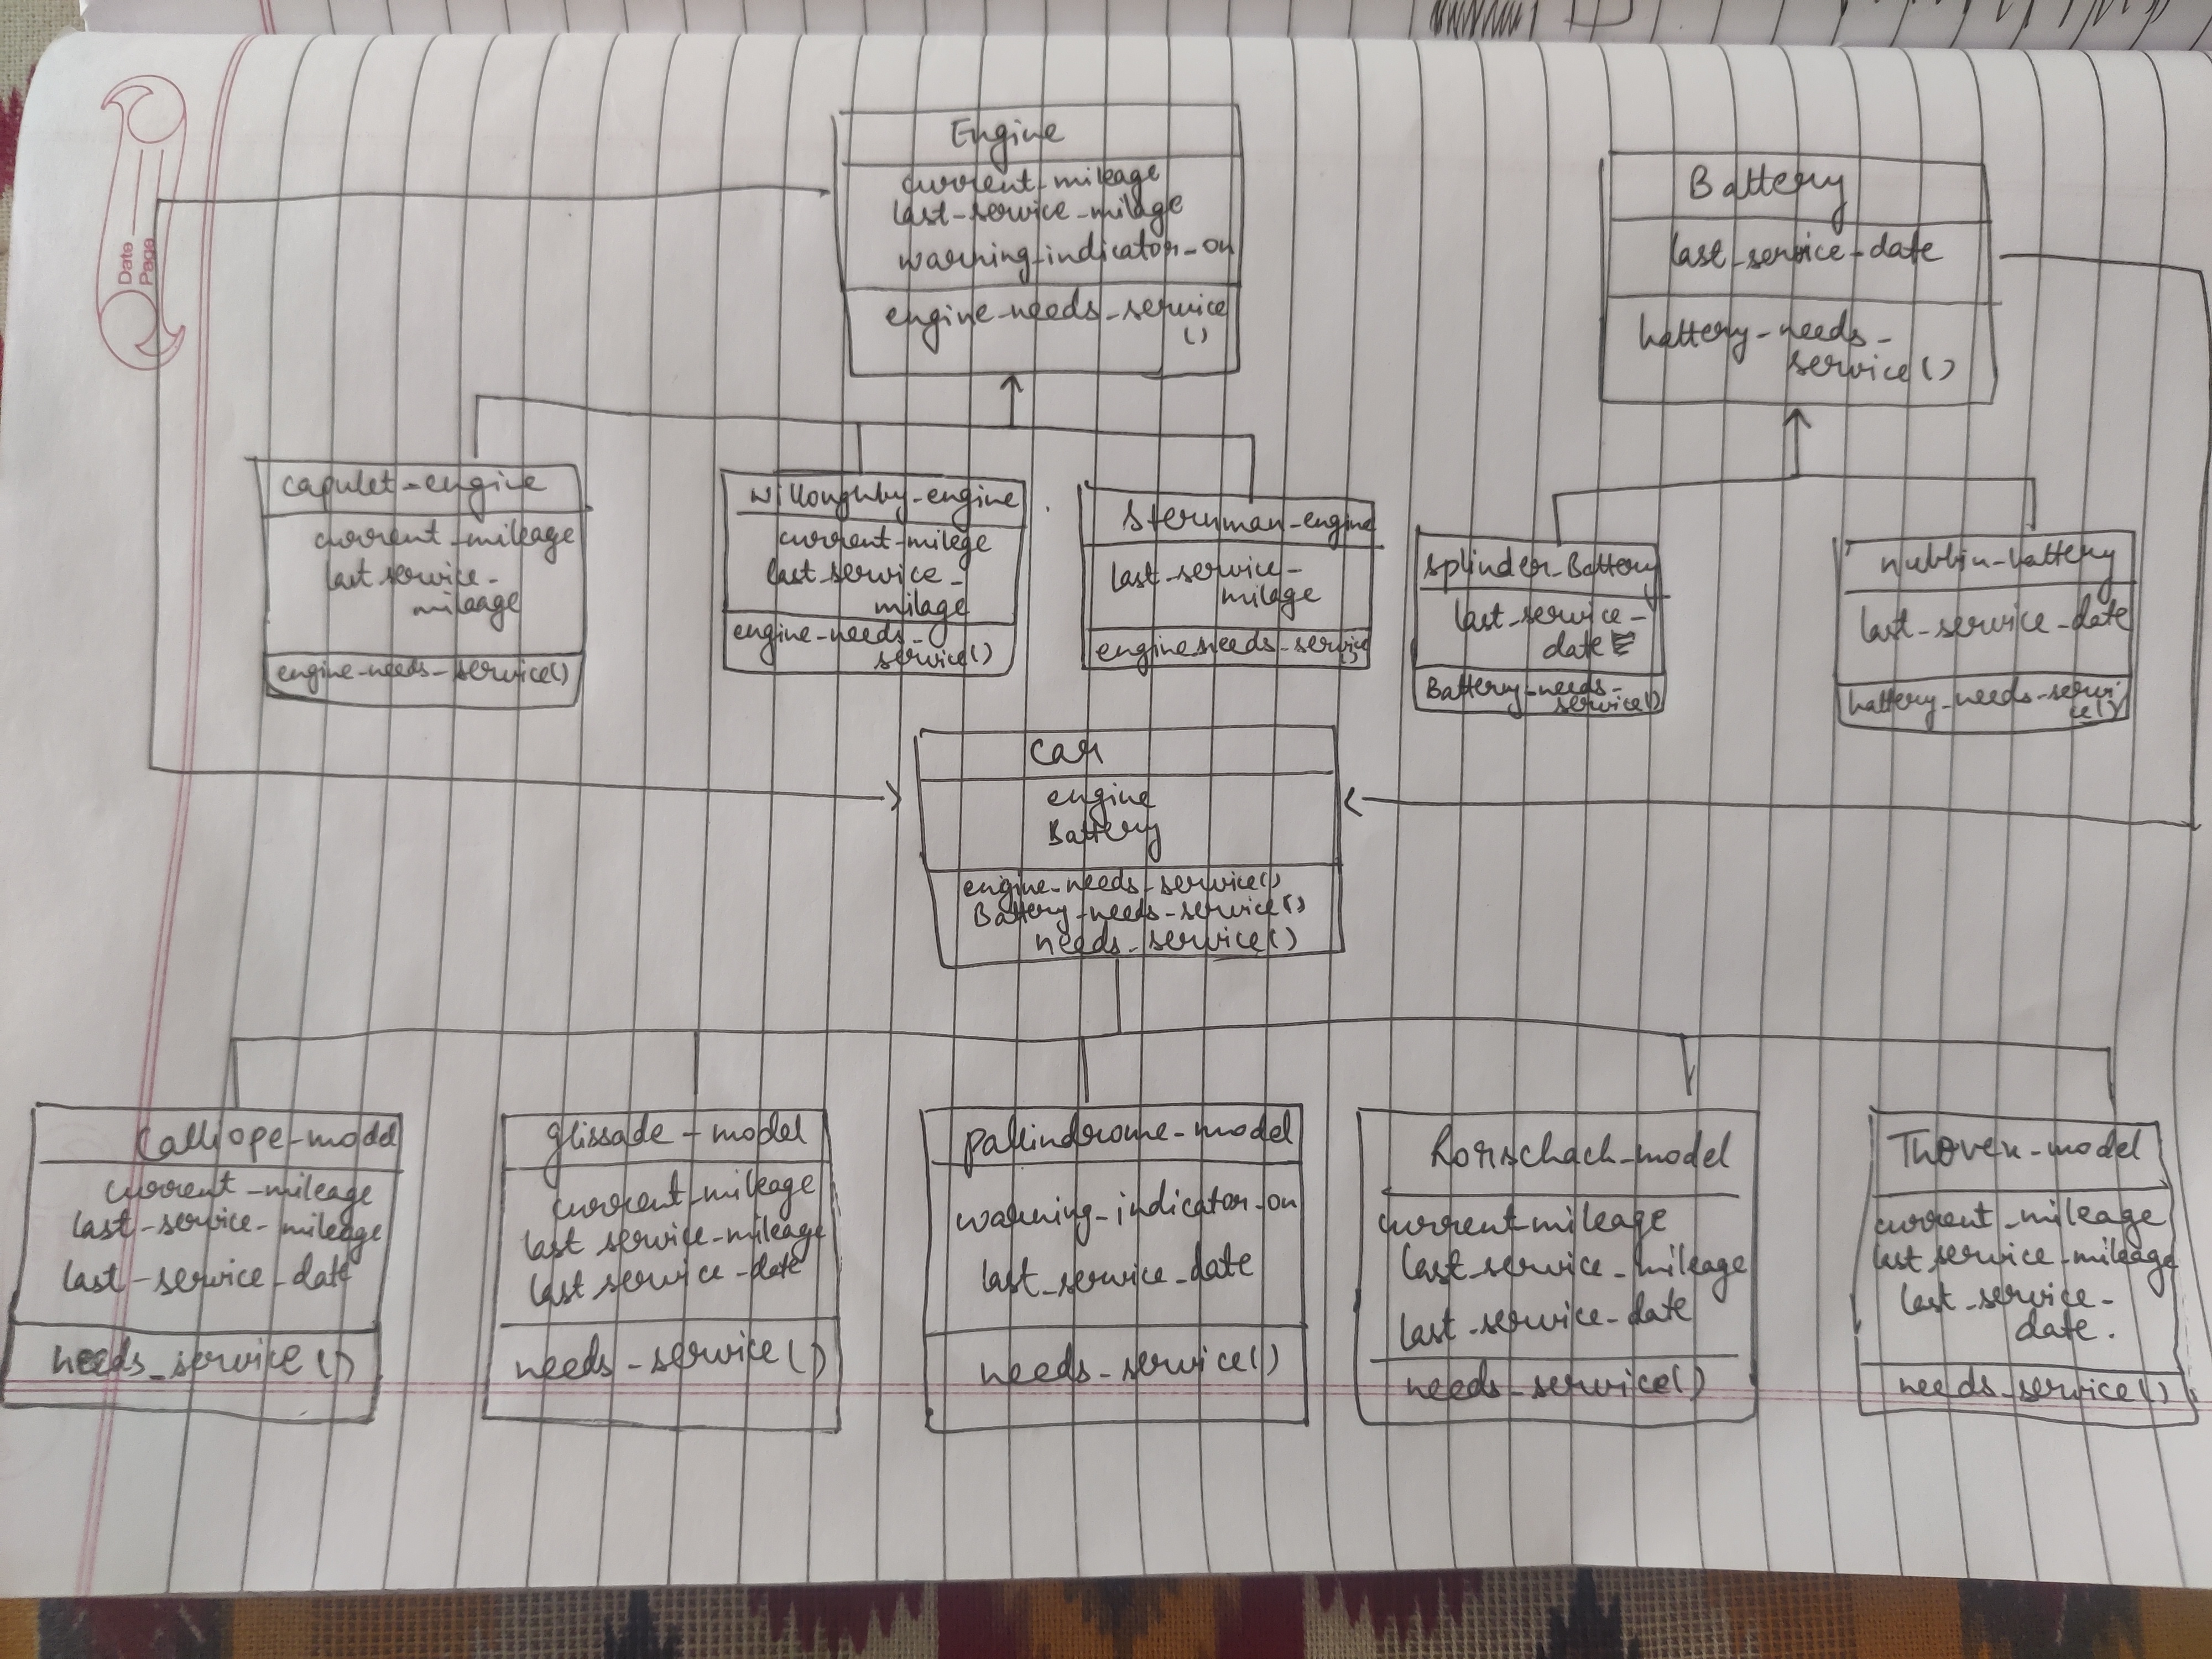 Date
Page
Engine
current_mileage
last_service_milage
warning_indicator_on
engine_needs_service
()
Battery
last_service_date
battery_needs_
service()
capulet_engine
current_mileage
last_service_
mileage
engine_needs_service()
willoughby_engine
current_milege
last_service_
milage
engine_needs_
service()
sternman_engine
last_service_
milage
engine needs_service
()
splinder_Battery
last_service_
date
Battery_needs_
service()
nubbin_battery
last_service_date
battery_needs_servi
ce()
car
engine
Battery
engine_needs_service()
Battery_needs_service()
needs_service()
Calliope_model
current_mileage
last_service_mileage
last_service_date
needs_service()
glissade_model
current_mileage
last service_mileage
last service_date
needs_service()
pallindrome_model
warning_indicator_on
last_service_date
needs_service()
Rorschach_model
current_mileage
last_service_mileage
last_service_date
needs_service()
Thovex_model
current_mileage
last_service_mileage
last_service_
date.
needs_service()